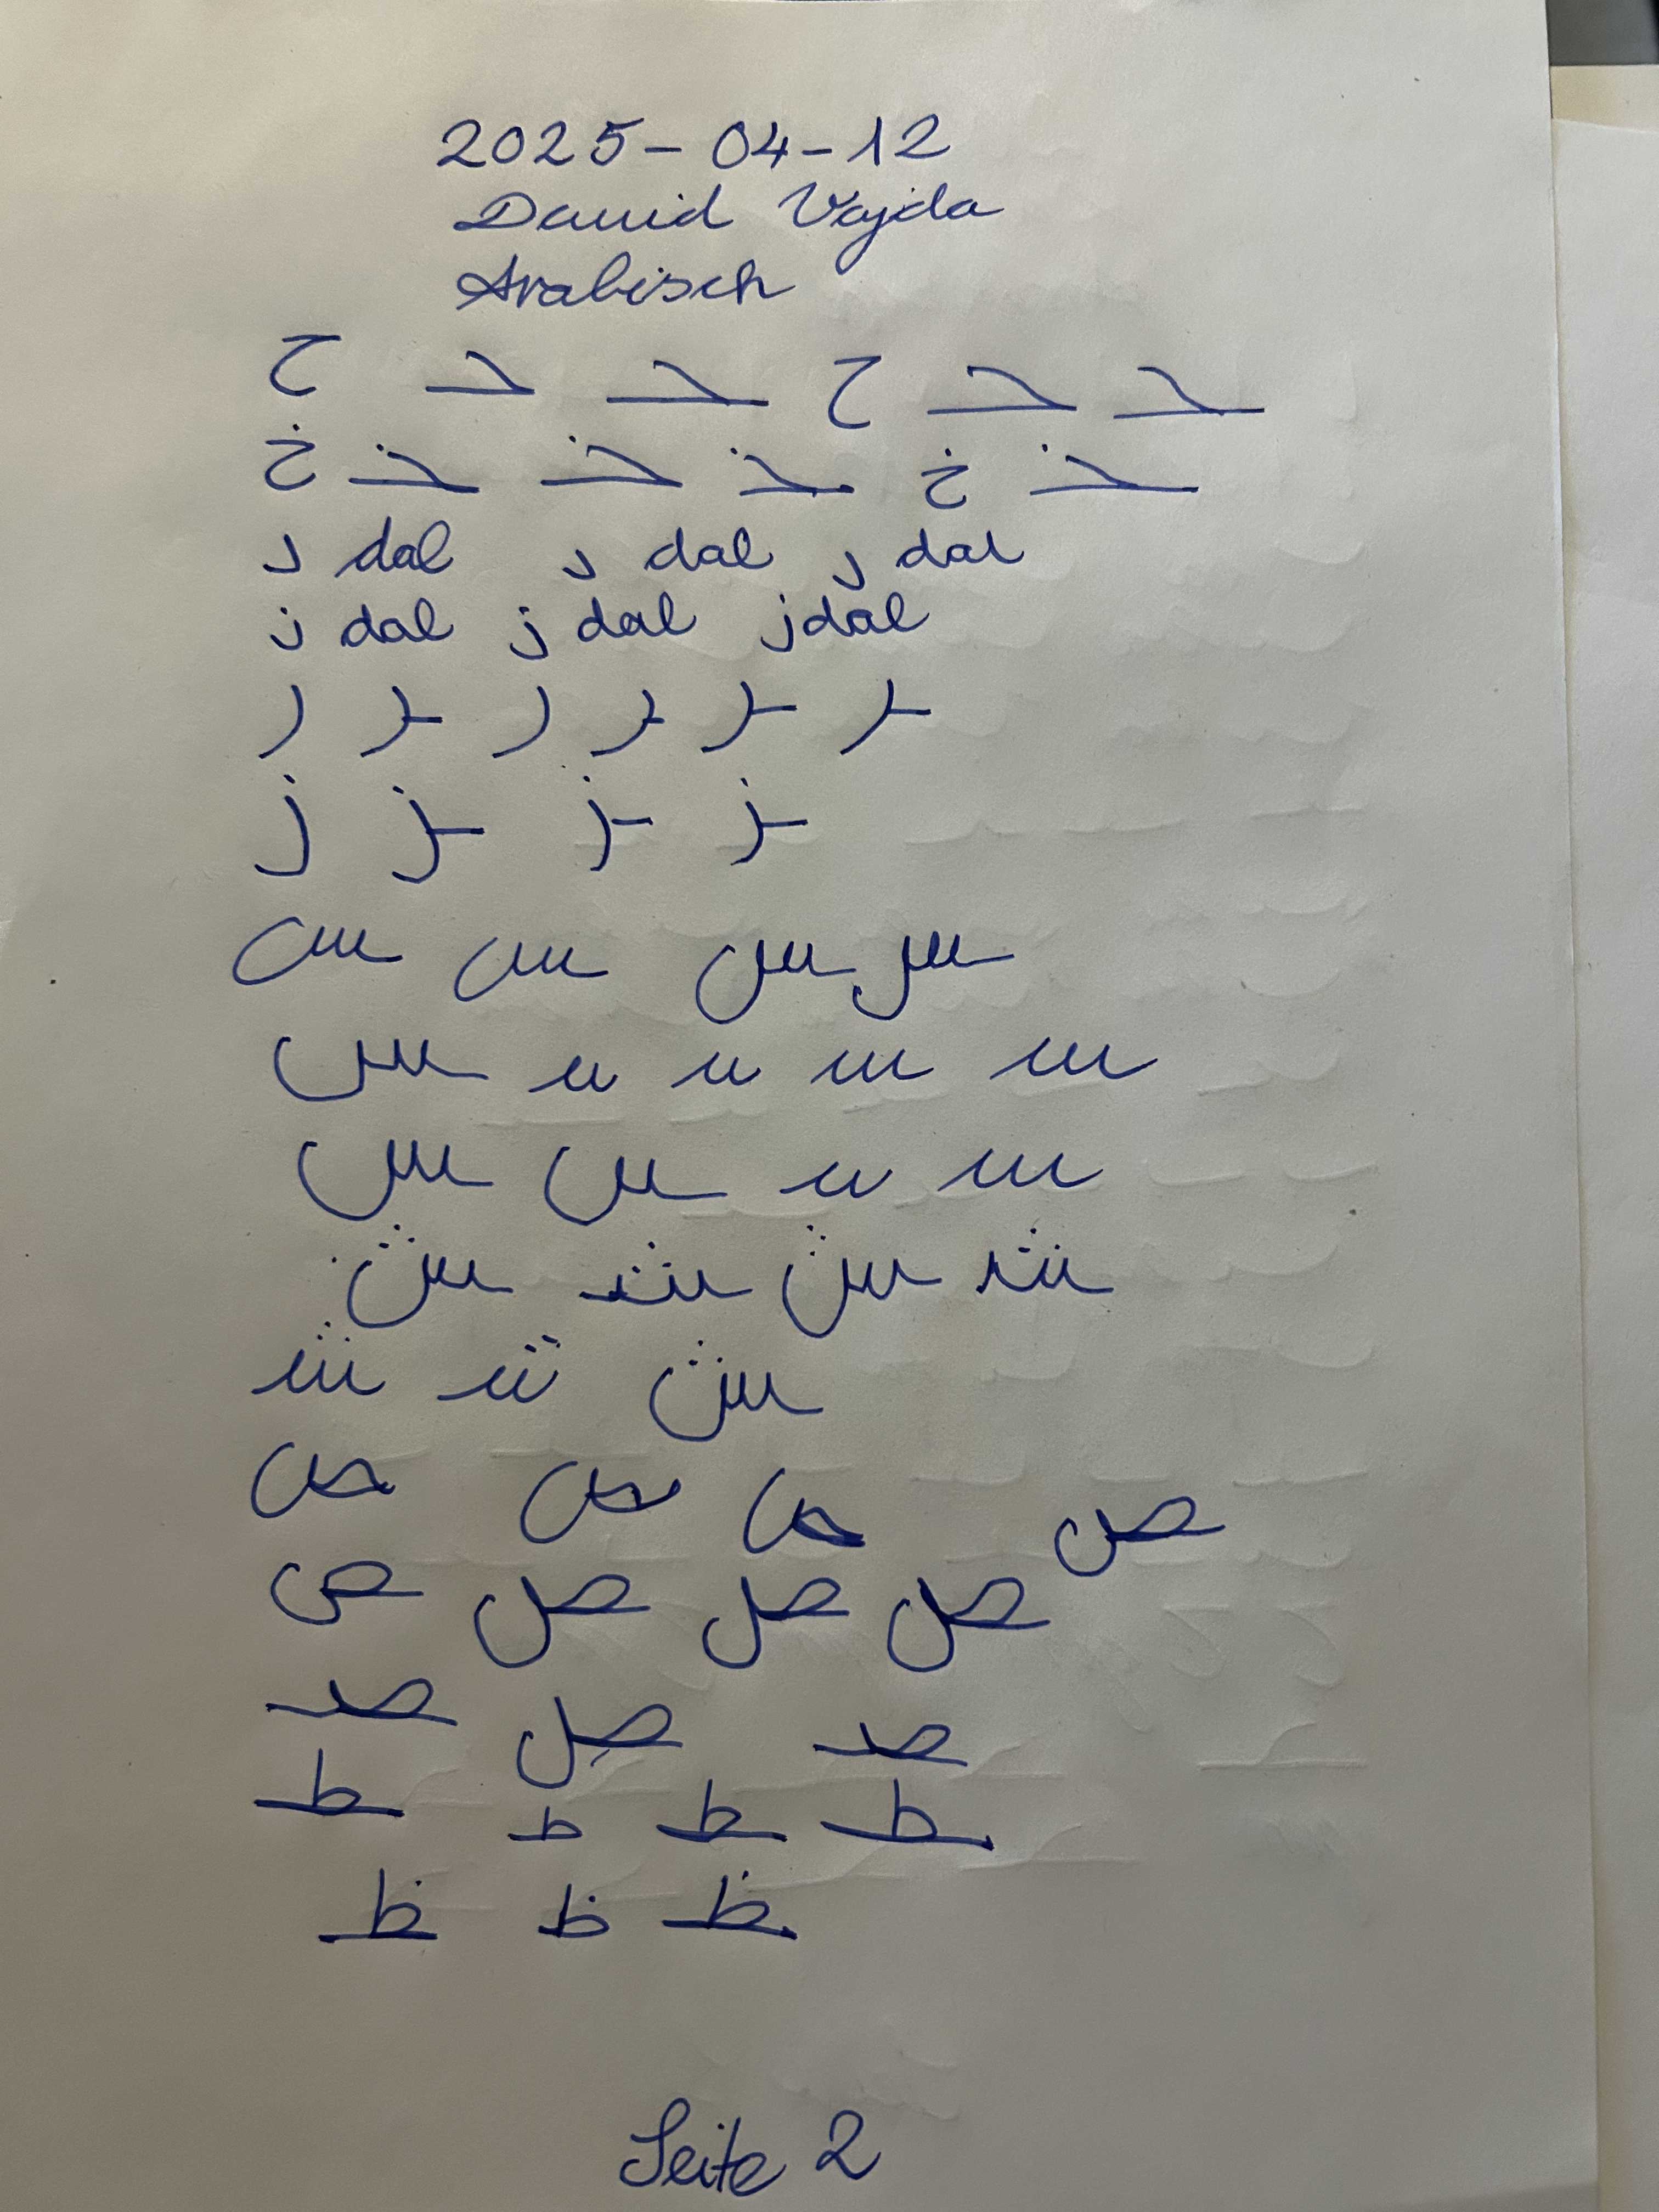 2025-04-12
David Vajda
Arabisch
ح ـحـ ـحـ ح ـحـ ـحـ
خ ـخـ ـخـ ـخـ خ ـخـ
د dal د dal د dal
ذ dal ذ dal ذ dal
ر ـر ر ـر ـر ـر
ز ـز ـز ـز
س س س س
س ـسـ ـسـ ـسـ ـسـ
س س ـسـ ـسـ
ش ـشـ ش ـشـ
ـشـ ـشـ ش
ص ص ص ص
ص ص ص ص
ـصـ ص ـصـ
ـطـ ط ـطـ ـطـ
ـظـ ظ ـظـ
Seite 2